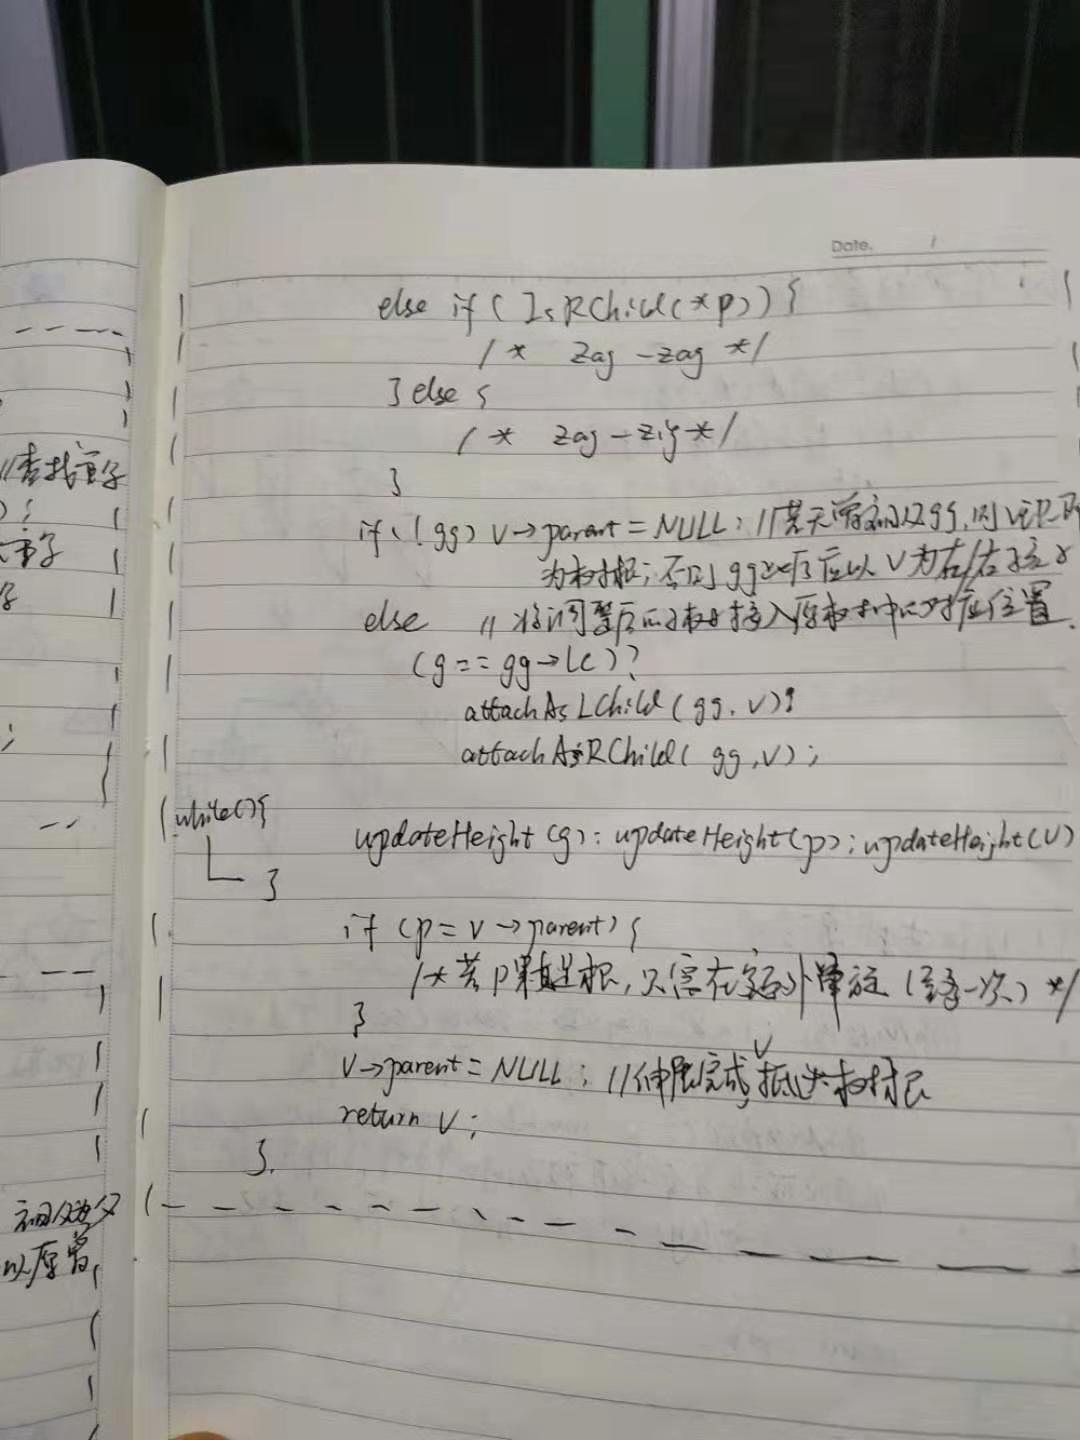 Date.
else if ( IsRChild(*p)) {
/* zag - zag */
} else {
/* zag - zig */
}
if (!gg) v→parent = NULL; //若无曾祖父gg,则v
为树根;否则gg此后应以v为左/右孩
else // 将调整后的子树接入原树中的对应位置.
(g == gg→lc)?
attachAsLChild(gg, v):
attachAsRChild(gg, v);
while(){
updateHeight(g); updateHeight(p); updateHeight(v)
}
if (p = v→parent) {
/*若p果真是根,只需在额外单旋(至多一次)*/
}
v→parent = NULL; //伸展完成,v抵达树根
return v;
}.
//查找
) {